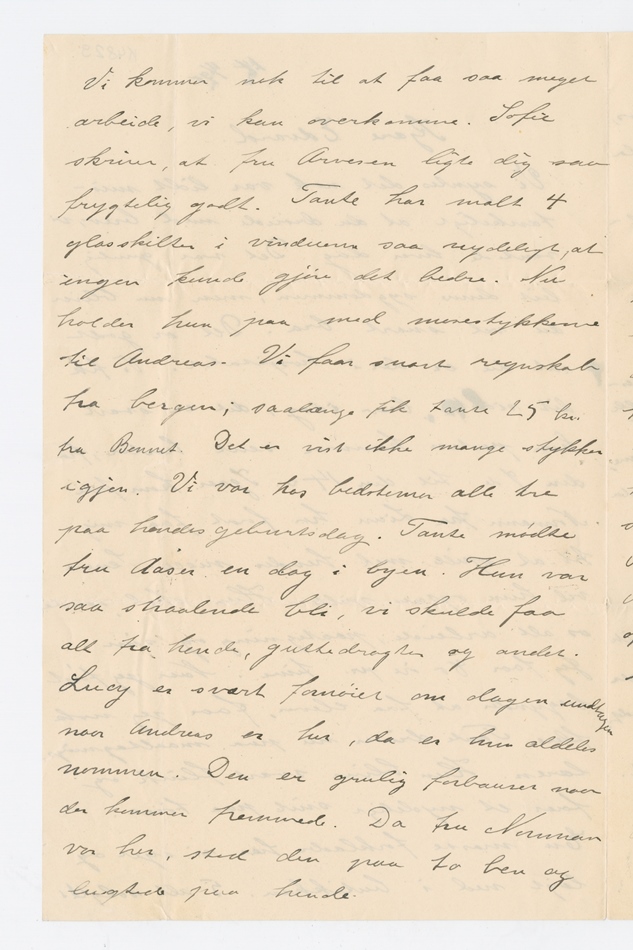 Vi kommer nok til at faa saa meget
arbeide, vi kan overkomme. Sofie
skriver, at fru Arvesen ligte dig saa
frygtelig godt. Tante har malt 4
glasskilter i vinduerne saa nydeligt, at
ingen kunde gjøre det bedre. Nu
holder hun paa med
til Andreas. Vi faar snart regnskab
fra bergen; saalænge fik tante 25 kr.
fra Bennet. Det er vist ikke mange stykker
igjen. Vi var hos bedstemor alle tre
paa hendes geburtsdag. Tante mødte
fru Aaser en dag i byen. Hun var
saa straalende bli, vi skulde faa
alt fra hende, og andet.
Lucy er svært fornøiet om dagen undtagen
naar Andreas er her, da er hun aldeles
nommen. Den er grulig forbauset naar
der kommer fremmede. Da fru Norman
var her, stod den paa to ben og
lugtede paa hende.